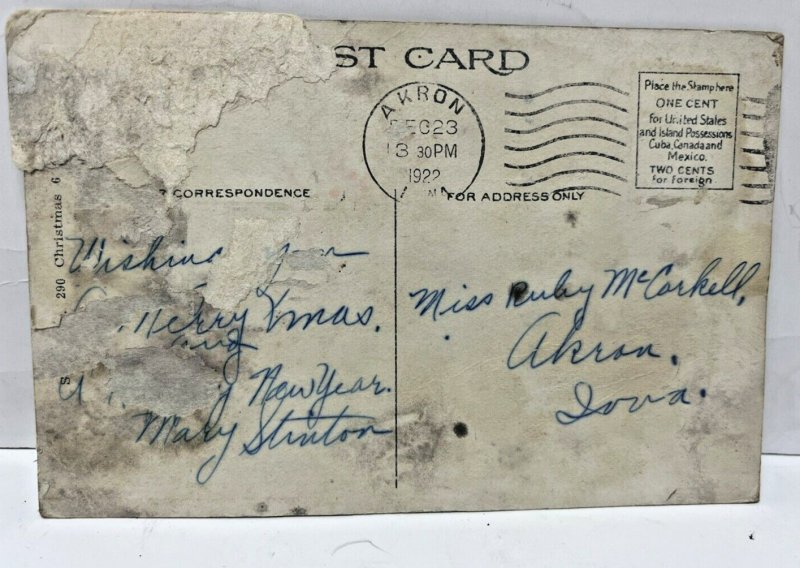 ST CARD
AKRON
DEC 23
3 30PM
1922
Place the Stamp here
ONE CENT
for United States
and Island Possessions
Cuba, Canada and
Mexico.
TWO CENTS
for foreign
CORRESPONDENCE
FOR ADDRESS ONLY
290 Christmas 6
Wishing you
a Merry Xmas.
and
New Year.
Mary Stinton
Miss Ruby McCorkell,
Akron,
Iowa.